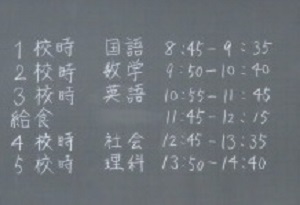 1校時 国語 8:45-9:35
2校時 数学 9:50-10:40
3校時 英語 10:55-11:45
給食 11:45-12:15
4校時 社会 12:45-13:35
5校時 理科 13:50-14:40